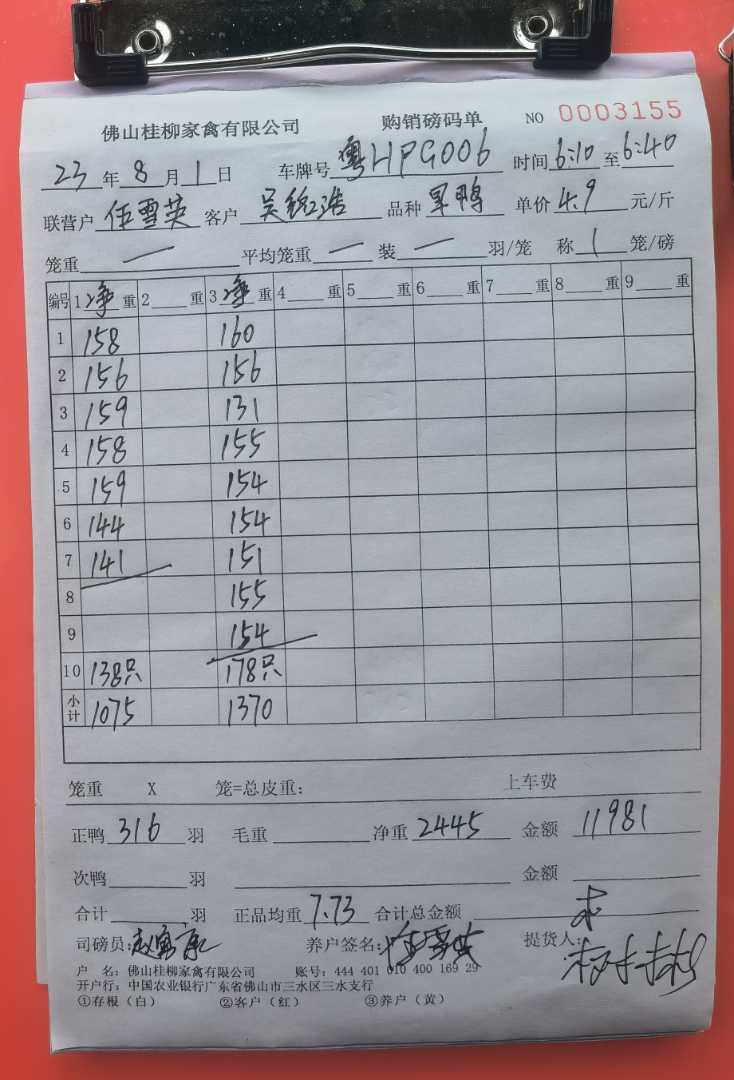 佛山桂柳家禽有限公司 购销磅码单 NO 0003155
23年8月1日 车牌号粤HPG006 时间6:10至6:40
联营户伍雪英 客户吴锐浩 品种旱鸭 单价4.9元/斤
笼重一 平均笼重一 装一羽/笼 称1笼/磅
编号 1净重 2重 3净重 4重 5重 6重 7重 8重 9重
1 158 160
2 156 156
3 159 131
4 158 155
5 159 154
6 144 154
7 141 151
8 155
9 154
10 138只 178只
小计 1075 1370
笼重 X 笼=总皮重: 上车费
正鸭316羽 毛重 净重2445 金额11981
次鸭 羽 金额
合计 羽 正品均重7.73 合计总金额
司磅员: 养户签名:伍雪英 提货人:
户 名: 佛山桂柳家禽有限公司 账号: 444 401 010 400 169 29
开户行: 中国农业银行广东省佛山市三水区三水支行
①存根(白) ②客户(红) ③养户(黄)